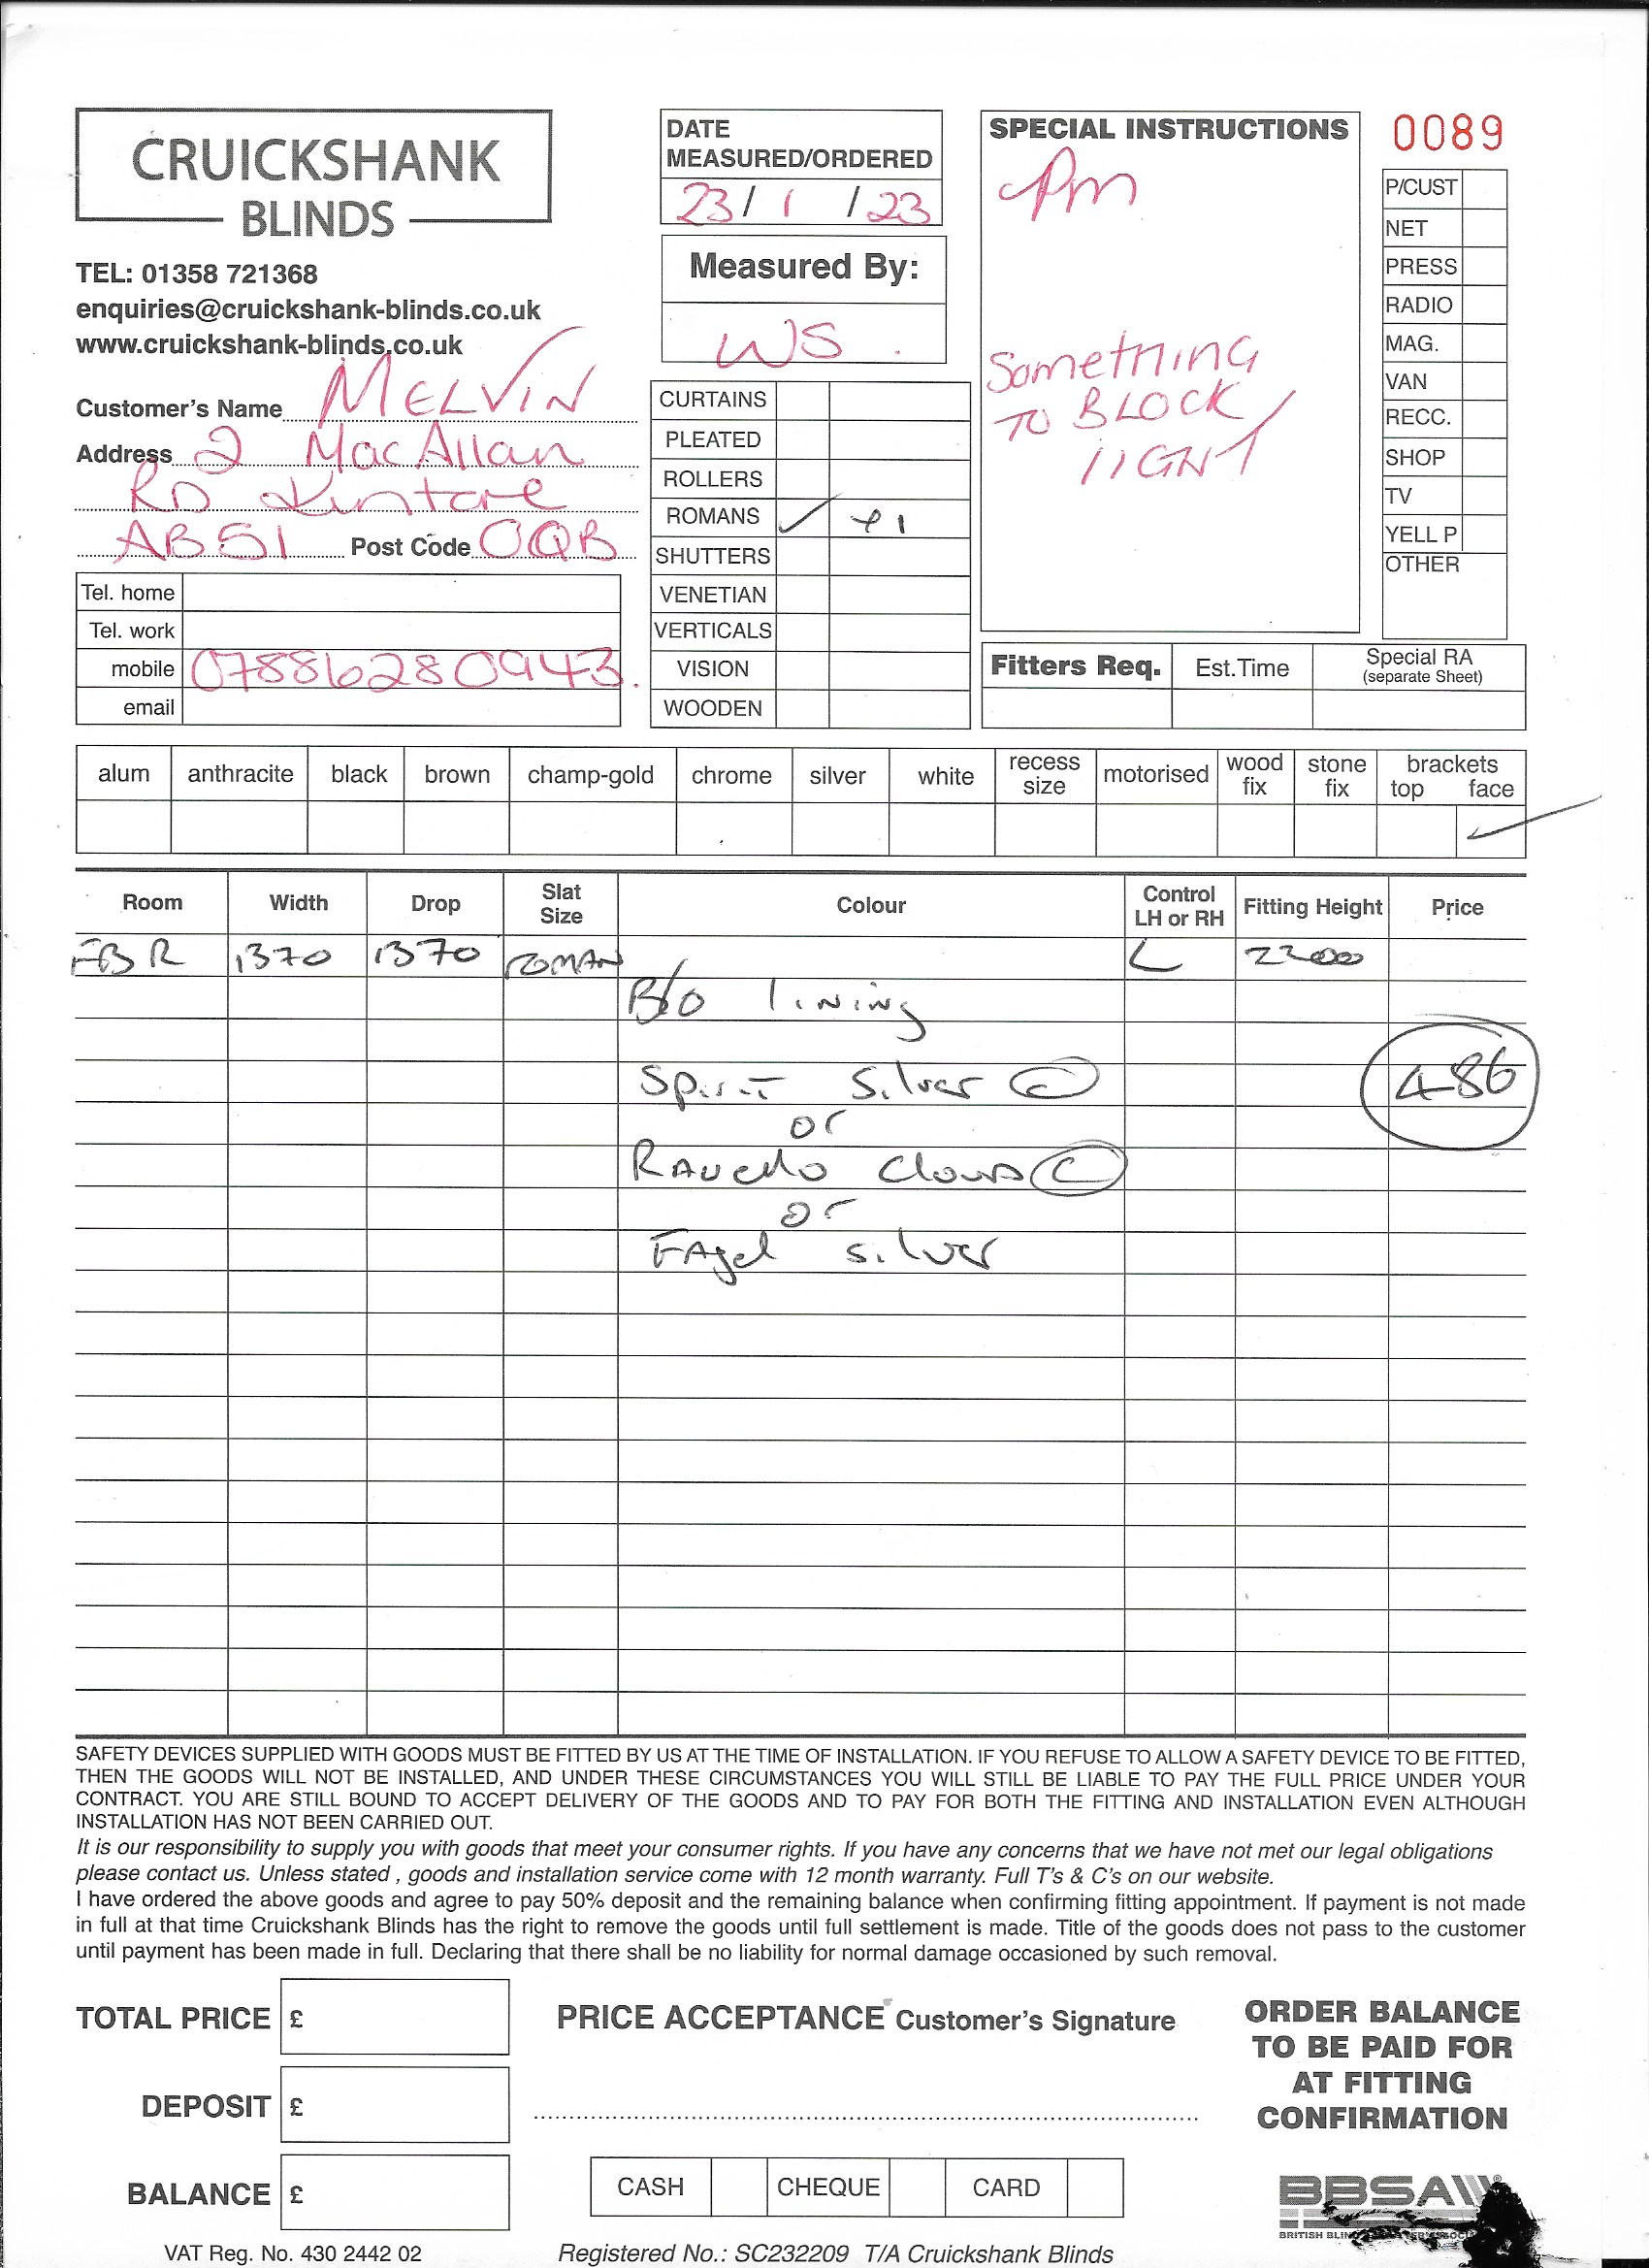 CRUICKSHANK
BLINDS
TEL: 01358 721368
enquiries@cruickshank-blinds.co.uk
www.cruickshank-blinds.co.uk
Customer's Name MELVIN
Address 2 MacAllan
RD Kintore
AB51 Post Code 0QB
Tel. home
Tel. work
mobile 07886280943.
email
DATE
MEASURED/ORDERED
23/1/23
Measured By:
WS
CURTAINS
PLEATED
ROLLERS
ROMANS ✓
SHUTTERS
VENETIAN
VERTICALS
VISION
WOODEN
SPECIAL INSTRUCTIONS
Pm
SOMETHING
TO BLOCK
LIGHT
0089
P/CUST
NET
PRESS
RADIO
MAG.
VAN
RECC.
SHOP
TV
YELL P
OTHER
Fitters Req. Est.Time Special RA
(separate Sheet)
alum anthracite black brown champ-gold chrome silver white recess size motorised wood fix stone fix brackets top face
✓
Room Width Drop Slat Size Colour Control LH or RH Fitting Height Price
FBR 1370 1370 ROMAN L 2200
B/O lining
Spirit Silver C 486
or
Cloud C
or
silver
SAFETY DEVICES SUPPLIED WITH GOODS MUST BE FITTED BY US AT THE TIME OF INSTALLATION. IF YOU REFUSE TO ALLOW A SAFETY DEVICE TO BE FITTED,
THEN THE GOODS WILL NOT BE INSTALLED, AND UNDER THESE CIRCUMSTANCES YOU WILL STILL BE LIABLE TO PAY THE FULL PRICE UNDER YOUR
CONTRACT. YOU ARE STILL BOUND TO ACCEPT DELIVERY OF THE GOODS AND TO PAY FOR BOTH THE FITTING AND INSTALLATION EVEN ALTHOUGH
INSTALLATION HAS NOT BEEN CARRIED OUT.
It is our responsibility to supply you with goods that meet your consumer rights. If you have any concerns that we have not met our legal obligations
please contact us. Unless stated , goods and installation service come with 12 month warranty. Full T's & C's on our website.
I have ordered the above goods and agree to pay 50% deposit and the remaining balance when confirming fitting appointment. If payment is not made
in full at that time Cruickshank Blinds has the right to remove the goods until full settlement is made. Title of the goods does not pass to the customer
until payment has been made in full. Declaring that there shall be no liability for normal damage occasioned by such removal.
TOTAL PRICE £
DEPOSIT £
BALANCE £
VAT Reg. No. 430 2442 02
PRICE ACCEPTANCE Customer's Signature
CASH CHEQUE CARD
Registered No.: SC232209 T/A Cruickshank Blinds
ORDER BALANCE
TO BE PAID FOR
AT FITTING
CONFIRMATION
BBSA